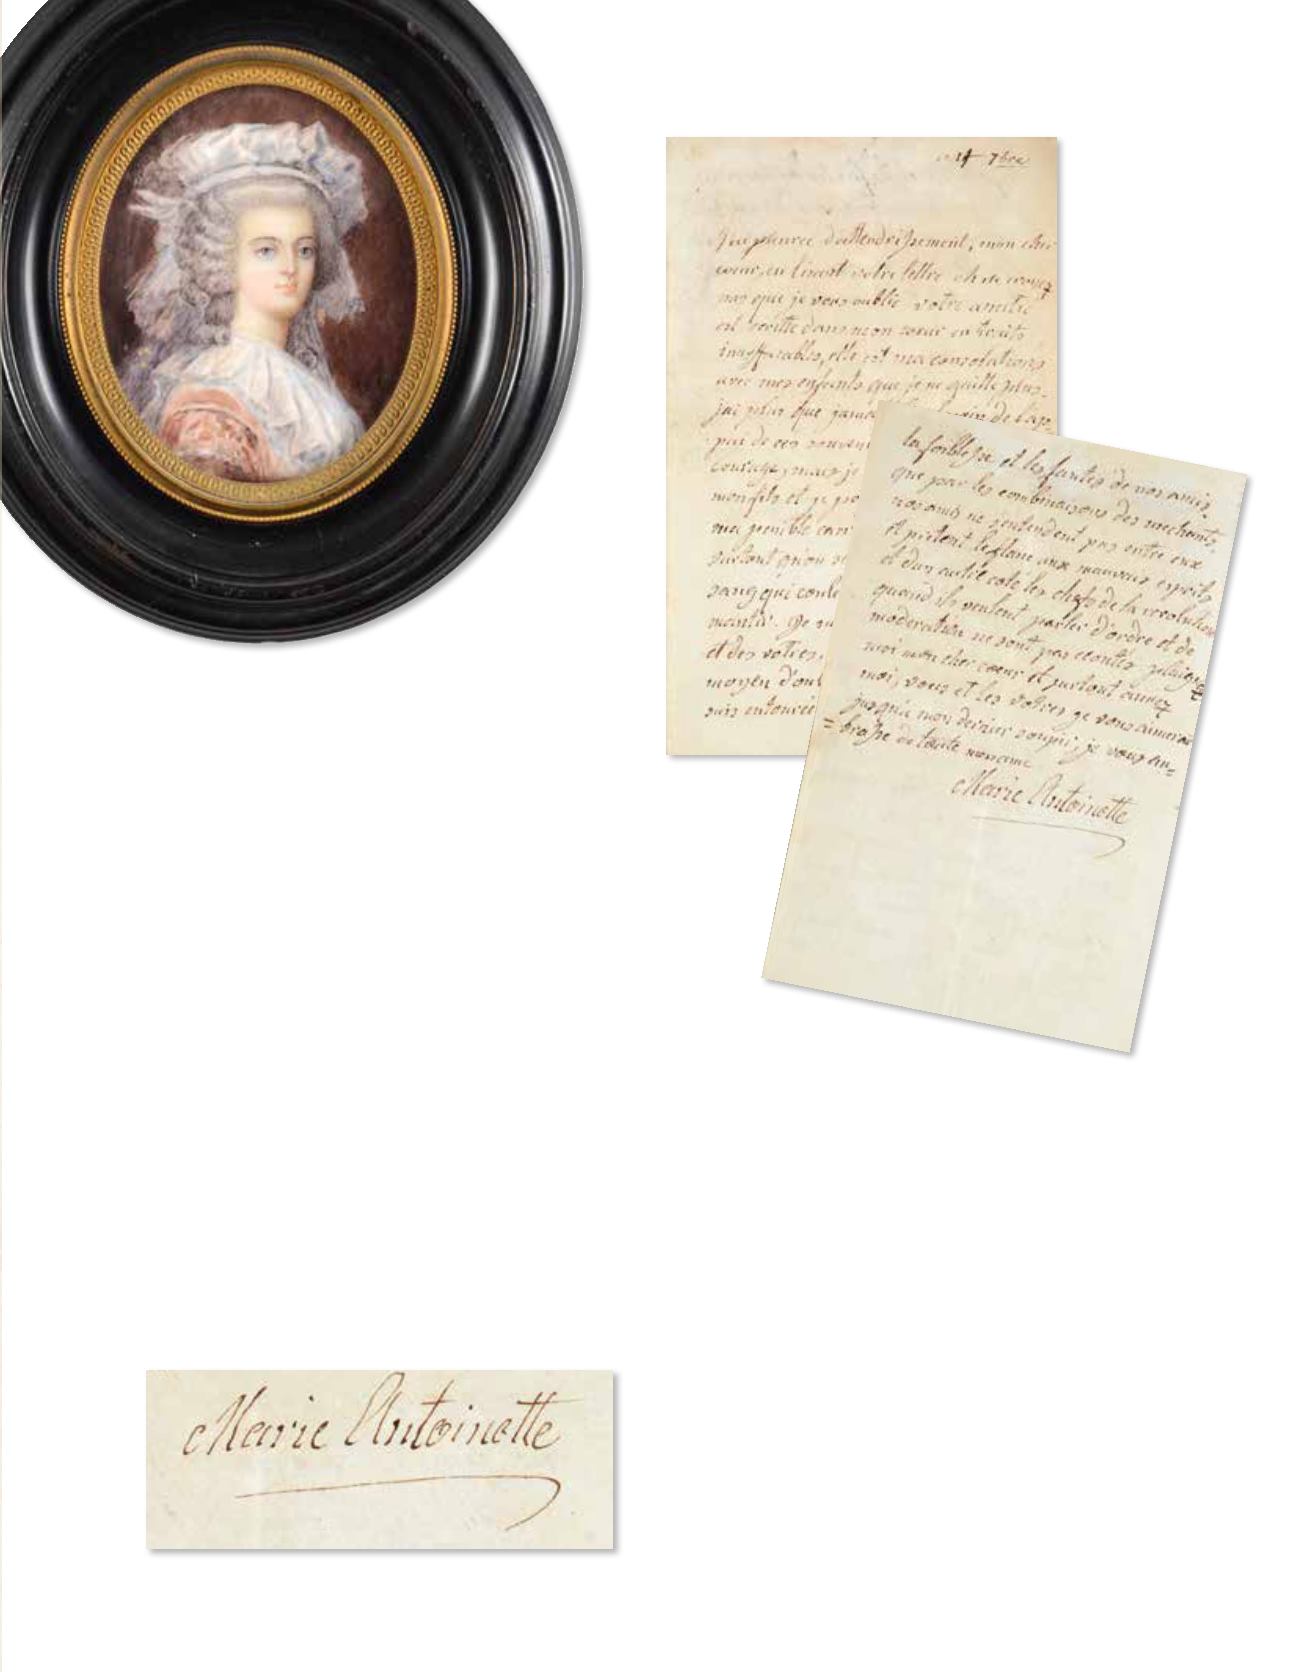 ce 14 7bre
J'ai pleurée d'attendrissement, mon cher
coeur, en lisant votre lettre oh ne croyez
pas que je vous oublie votre amitié
est écritte dans mon coeur en traits
inneffacables, elle est ma consolations
avec mes enfants que je ne quitte plus.
jai plus que jamais besoin de l'ap=
pui de ces souveni
courage, mais je
mon fils et je po
ma penible carr
surtout qu'on
sang qui coule
mentir. Je su
et des votres.
moyen d'ou
suis entourée
la foiblesse et les fautes de nos amis
que par les combinaisons des mechants,
nos amis ne s'entendent pas entre eux
et prêtent le flanc aux mauvais esprits
et d'un autre coté les chefs de la revolution
quand ils veulent parler d'ordre et de
moderation ne sont pas ecoutés. plaignez
moi mon cher coeur et surtout aimez
moi, vous et les votres je vous aimerai
jusqu'à mon dernier soupir, je vous em=
=brasse de toute mon ame
Marie Antoinette
Marie Antoinette